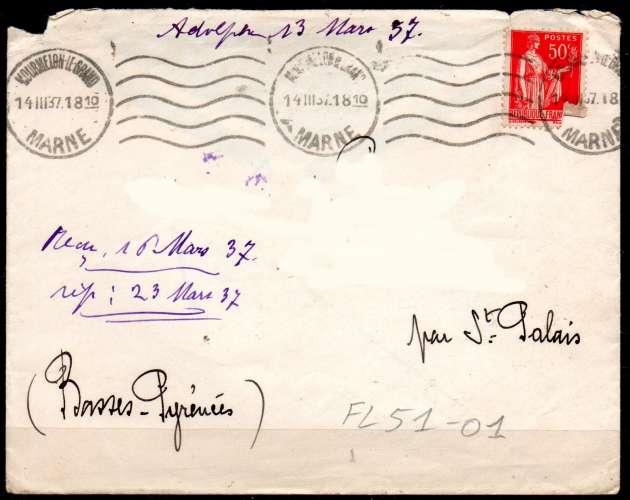 13 Mars 37.
POSTES
50c
MOURMELON-LE-GRAND
14 III 37. 18 10
MARNE
14 III 37. 18 10
MARNE
37. 18
MARNE
Reçu, 16 Mars 37.
rép : 23 Mars 37
par St. Palais
(Basses-Pyrénées)
FL51-01